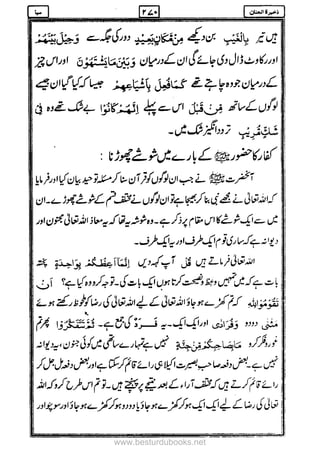 ذخيرة الجنان ٢٧٠ سبا
ہیں تیر بِالْغَيْبِ بن دیکھے مِنْ مَّكَانٍ بَعِيْدٍ دور کی جگہ سے وَحِيْلَ بَيْنَهُمْ
اور رکاوٹ ڈال دی جائے گی ان کے درمیان وَبَيْنَ مَا يَشْتَهُوْنَ اور اس چیز
کے درمیان جو وہ چاہتے تھے كَمَا فُعِلَ جیسا کہ کیا گیا بِاَشْيَاعِهِمْ ان جیسے
لوگوں کے ساتھ مِّنْ قَبْلُ اس سے پہلے اِنَّهُمْ كَانُوْا بے شک تھے وہ فِىْ
شَكٍّ مُّرِيْبٍ تردد انگیز شک میں۔
کفار کا حضور ﷺ کے بارے میں شوشے چھوڑنا :
آنحضرت ﷺ نے جب ان لوگوں کو قرآن سنا کر مسئلہ توحید بیان کیا اور فرمایا
کہ اللہ تعالیٰ نے مجھے نبی بنا کر بھیجا ہے تو ان لوگوں نے مختلف قسم کے شوشے چھوڑے۔ ان
میں سے ایک شوشے کا اس مقام پر ذکر ہے۔ وہ شوشہ یہ تھا کہ یہ معاذ اللہ تعالیٰ مجنون اور
دیوانہ ہے کہ ساری قوم ایک طرف اور یہ ایک طرف۔
اللہ تعالیٰ فرماتے ہیں قُلْ آپ کہہ دیں اِنَّمَآ اَعِظُكُمْ بِوَاحِدَةٍ پختہ
بات ہے کہ میں تمہیں وعظ و نصیحت کرتا ہوں ایک بات کی۔ توجہ کرو وہ کیا ہے؟ اَنْ
تَقُوْمُوْا لِلّٰهِ کہ تم کھڑے ہو جاؤ اللہ تعالیٰ کے لیے اللہ تعالیٰ کی رضا کو ملحوظ رکھتے ہوئے
مَثْنٰى دو دو وَفُرَادٰى اور ایک ایک۔ یہ فَرْدٌ کی جمع ہے۔ ثُمَّ تَتَفَكَّرُوْا پھر تم
غور و فکر کرو مَا بِصَاحِبِكُمْ مِّنْ جِنَّةٍ نہیں ہے تمہارے ساتھی میں کوئی جنون، یہ دیوانہ
نہیں ہے۔ بعض دفعہ صاحب بصیرت اکیلا ہی رائے قائم کر سکتا ہے اور بعض دفعہ مل جل کر
رائے قائم کرتے ہیں کہ مختلف آراء کے بعد نتیجے پر پہنچتے ہیں۔ تو تم اس طرح کرو کہ اللہ
تعالیٰ کی رضا کے لیے ایک ایک ہو کر کھڑے ہو جاؤ یا دو دو ہو کر کھڑے ہو جاؤ اور سوچو اور
www.besturdubooks.net